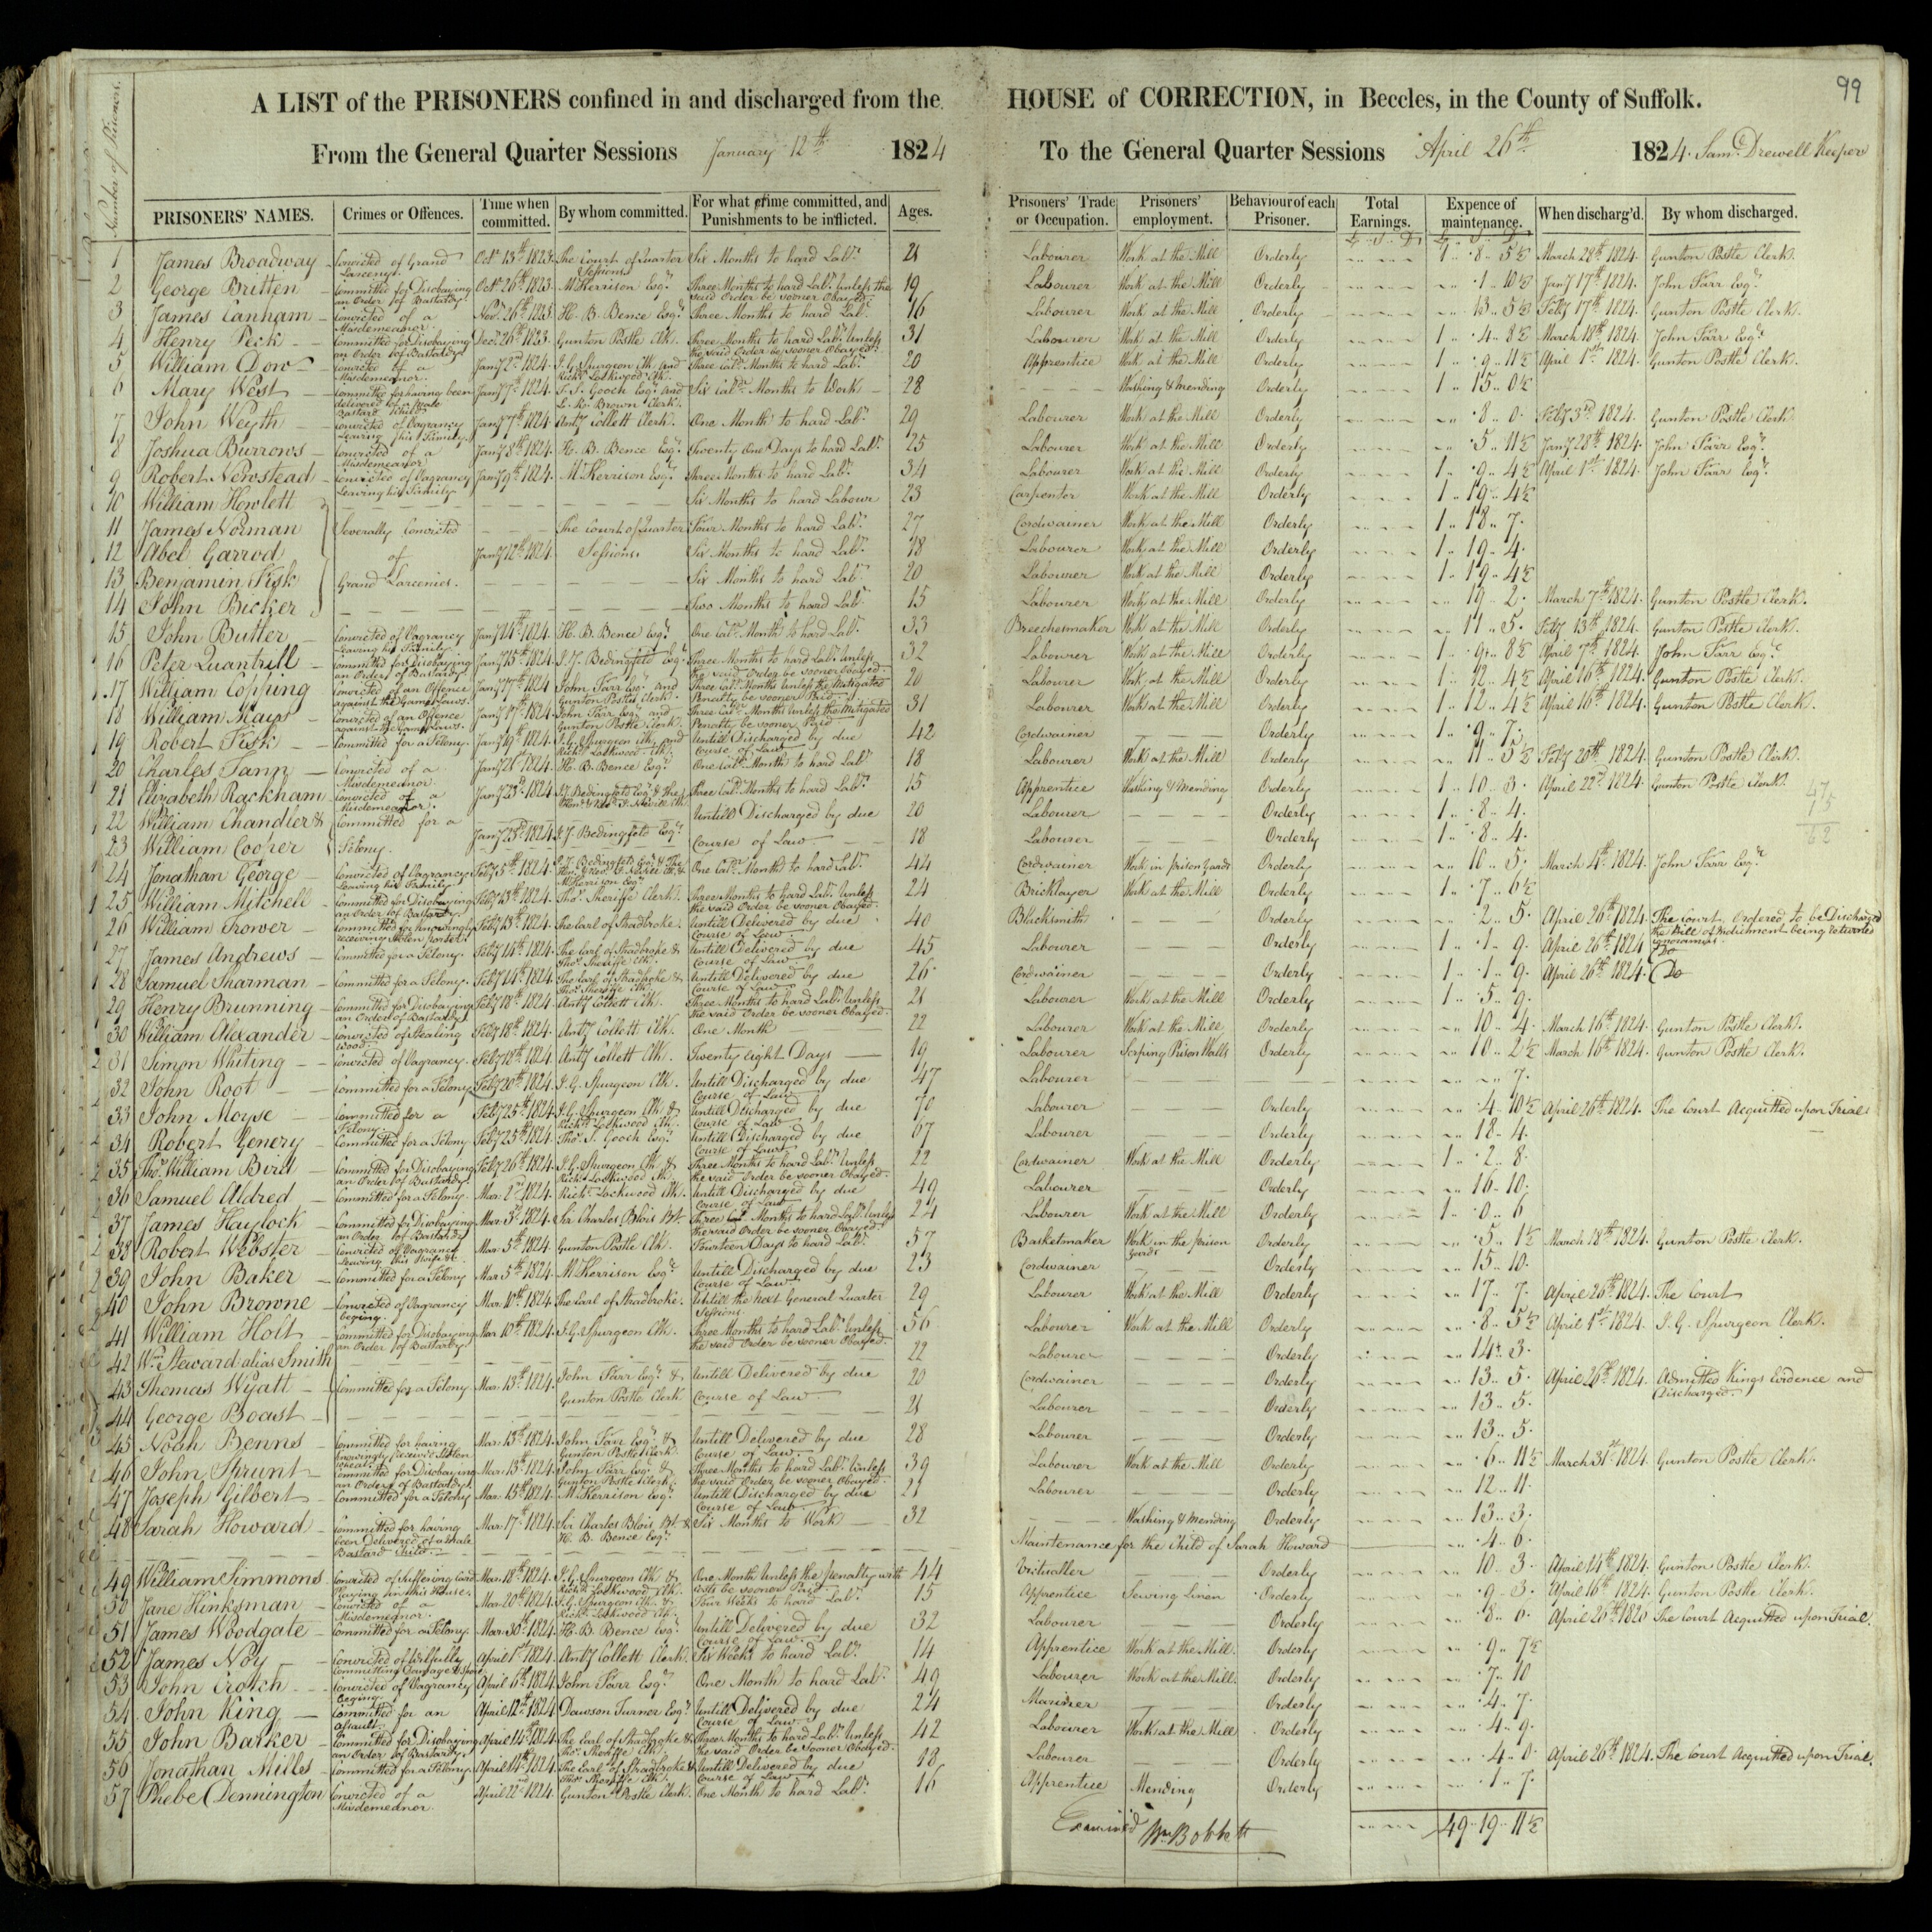 99
A LIST of the PRISONERS confined in and discharged from the HOUSE of CORRECTION, in Beccles, in the County of Suffolk.
From the General Quarter Sessions January 12th 1824 To the General Quarter Sessions April 26th 1824. Saml. Drewell Keeper
Number of Prisoners.
PRISONERS' NAMES. Crimes or Offences. Time when committed. By whom committed. For what crime committed, and Punishments to be inflicted. Ages. Prisoners' Trade or Occupation. Prisoners' employment. Behaviour of each Prisoner. Total Earnings. Expence of maintenance. When discharg'd. By whom discharged.
1 James Broadway Convicted of Grand Larceny. Octr 13th 1823. The Court of Quarter Sessions Six Months to hard Labr. 21 Labourer Work at the Mill Orderly 1 .. 8 .. 5½ March 28th 1824. Gunton Postle Clerk.
2 George Britten Committed for Disobaying an Order of Bastardy. Octr 26th 1823. M Kerrison Esqr. Three Months to hard Labr. Unless the said Order be sooner Obayed. 19 Labourer Work at the Mill Orderly 1 .. 10½ Jany 17th 1824. John Farr Esqr.
3 James Canham Convicted of a Misdemeanor. Novr. 26th 1823. H. B. Bence Esqr. Three Months to hard Labr. 16 Labourer Work at the Mill Orderly 13 .. 5½ Feby 17th 1824. Gunton Postle Clerk.
4 Henry Peck Committed for Disobaying an Order of Bastardy. Decr. 26th 1823. Gunton Postle Clk. Three Months to hard Labr. Unless the said Order be sooner Obayed. 31 Labourer Work at the Mill Orderly 1 .. 4 .. 8½ March 18th 1824. John Farr Esqr.
5 William Dow Convicted of a Misdemeanor. Jany 2nd 1824. J. G. Spurgeon Clk. and Richd. Lockwood Clk. Three Calr. Months to hard Labr. 20 Apprentice Work at the Mill Orderly 1 .. 9 .. 11½ April 1st 1824. Gunton Postle Clerk.
6 Mary West Committed for having been delivered of a Male Bastard Child. Jany 7th 1824. T. S. Gooch Esqr. and L. R. Brown Clerk. Six Calr. Months to Work 28 Washing & Mending Orderly 1 .. 15 .. 0½
7 John Weyth Convicted of Vagrancy Leaving his Family. Jany 7th 1824. Anty Collett Clerk. One Month to hard Labr. 29 Labourer Work at the Mill Orderly 8 .. 0. Feby 3rd 1824. Gunton Postle Clerk.
8 Joshua Burrows Convicted of a Misdemeanor Jany 8th 1824. H. B. Bence Esqr. Twenty One Days to hard Labr. 25 Labourer Work at the Mill Orderly 5 .. 11½ Jany 28th 1824. John Farr Esqr.
9 Robert Newstead Convicted of Vagrancy Leaving his Family Jany 9th 1824. M Kerrison Esqr. Three Months to hard Labr. 34 Labourer Work at the Mill Orderly 1 .. 9 .. 4½ April 1st 1824. John Farr Esqr.
10 William Howlett Six Months to hard Labour 23 Carpenter Work at the Mill Orderly 1 .. 19 .. 4½
11 James Norman Severally Convicted The Court of Quarter Four Months to hard Labr. 27 Cordwainer Work at the Mill Orderly 1 .. 18 .. 7.
12 Abel Garrod of Jany 12th 1824. Sessions. Six Months to hard Labr. 18 Labourer Work at the Mill Orderly 1 .. 19 .. 4.
13 Benjamin Fisk Grand Larcenies. Six Months to hard Labr. 20 Labourer Work at the Mill Orderly 1 .. 19 .. 4½
14 John Bicker Two Months to hard Labr. 15 Labourer Work at the Mill Orderly 19 .. 2. March 7th 1824. Gunton Postle Clerk.
15 John Butler Convicted of Vagrancy Leaving his Family. Jany 14th 1824. H. B. Bence Esqr. One Calr. Month to hard Labr. 33 Breechesmaker Work at the Mill Orderly 11 .. 5. Feby 13th 1824. Gunton Postle Clerk.
16 Peter Quantrill Committed for Disobaying an Order of Bastardy. Jany 15th 1824. J. J. Bedingfeld Esqr. Three Months to hard Labr. Unless the said Order be sooner Obayed. 32 Labourer Work at the Mill Orderly 1 .. 9 .. 8½ April 7th 1824. John Farr Esqr.
17 William Copping Convicted of an Offence against the Game Laws. Jany 17th 1824 John Farr Esqr. and Gunton Postle Clerk. Three Calr. Months Unless the Mitigated Penalty be sooner Paid 20 Labourer Work at the Mill Orderly 1 .. 12 .. 4½ April 16th 1824. Gunton Postle Clerk.
18 William Mays Convicted of an Offence against the Game Laws. Jany 17th 1824. John Farr Esqr. and Gunton Postle Clerk. Three Calr. Months Unless the Mitigated Penalty be sooner Paid 31 Labourer Work at the Mill Orderly 1 .. 12 .. 4½ April 16th 1824. Gunton Postle Clerk.
19 Robert Fisk Committed for a Felony. Jany 19th 1824. J. G. Spurgeon Clk. and Richd. Lockwood Clk. Untill Discharged by due Course of Law 42 Cordwainer Orderly 1 .. 9 .. 7.
20 Charles Tann Convicted of a Misdemeanor Jany 21st 1824. H. B. Bence Esqr. One Calr. Month to hard Labr. 18 Labourer Work at the Mill Orderly 11 .. 5½ Feby 20th 1824. Gunton Postle Clerk.
21 Elizabeth Rackham Convicted of a Misdemeanor. Jany 23rd 1824 J. J. Bedingfeld Esqr. & the Honl. & Revd. G. Neville Clk. Three Calr. Months to hard Labr. 15 Apprentice Washing & Mending Orderly 1 .. 10 .. 3. April 22nd 1824. Gunton Postle Clerk.
22 William Chandler & Committed for a Untill Discharged by due 20 Labourer Orderly 1 .. 8 .. 4.
23 William Cooper Felony. Jany 25th 1824 J. J. Bedingfeld Esqr. Course of Law 18 Labourer Orderly 1 .. 8 .. 4.
47
15
62
24 Jonathan George Convicted of Vagrancy Leaving his Family Feby 5th 1824. J. J. Bedingfeld Esqr. & The Honl. & Revd. G. Neville Clk. & M Kerrison Esqr. One Calr. Month to hard Labr. 44 Cordwainer Work in prison yards Orderly 10 .. 5. March 4th 1824. John Farr Esqr.
25 William Mitchell Committed for Disobaying an Order of Bastardy. Feby 13th 1824. Thos. Sheriffe Clerk. Three Months to hard Labr. Unless the said Order be sooner Obayed. 24 Bricklayer Work at the Mill Orderly 1 .. 7 .. 6½
26 William Trower Committed for knowingly receiving stolen Feby 13th 1824. The Earl of Stradbroke. Untill Delivered by due Course of Law. 40 Blacksmith Orderly 2 .. 5. April 26th 1824. The Court Ordered to be Discharged the Bill of Indictment being returned ignoramus.
27 James Andrews Committed for a Felony. Feby 14th 1824. The Earl of Stradbroke & Thos. Sheriffe Clk. Untill Delivered by due Course of Law 45 Labourer Orderly 1 .. 1 .. 9. April 26th 1824 Do
28 Samuel Sharman Committed for a Felony. Feby 14th 1824. The Earl of Stradbroke & Thos. Sheriffe Clk. Untill Delivered by due Course of Law 26 Cordwainer Orderly 1 .. 1 .. 9. April 26th 1824. Do
29 Henry Brunning Committed for Disobaying an Order of Bastardy. Feby 18th 1824 Anty Collett Clk. Three Months to hard Labr. Unless the said Order be sooner Obayed. 21 Labourer Work at the Mill Orderly 1 .. 5 .. 9.
30 William Alexander Convicted of Stealing Wood. Feby 18th 1824. Anty Collett Clk. One Month 22 Labourer Work at the Mill Orderly 10 .. 4. March 16th 1824. Gunton Postle Clerk.
31 Simon Whiting Convicted of Vagrancy. Feby 18th 1824 Anty Collett Clk. Twenty Eight Days 19 Labourer Scraping Prison Walls Orderly 10 .. 2½ March 16th 1824. Gunton Postle Clerk.
32 John Root Committed for a Felony Feby 20th 1824. J. G. Spurgeon Clk. Untill Discharged by due Course of Law 47 Labourer 7.
33 John Moyse Committed for a Felony. Feby 25th 1824. J. G. Spurgeon Clk. & Richd. Lockwood Clk. Untill Discharged by due Course of Law 70 Labourer Orderly 4 .. 10½ April 26th 1824. The Court Acquitted upon Trial.
34 Robert Genery Committed for a Felony Feby 25th 1824. Thos. S. Gooch Esqr. Untill Discharged by due Course of Law 67 Labourer Orderly 18 .. 4.
35 Thos. William Bird Committed for Disobaying an Order of Bastardy. Feby 26th 1824. J. G. Spurgeon Clk. & Richd. Lockwood Clk. Three Months to hard Labr. Unless the said Order be sooner Obayed. 22 Cordwainer Work at the Mill Orderly 1 .. 2 .. 8.
36 Samuel Aldred Committed for a Felony. Mar. 2nd 1824. Richd. Lockwood Clk. Untill Discharged by due Course of Law 49 Labourer Orderly 16 .. 10.
37 James Haylock Committed for Disobaying an Order of Bastardy Mar. 3rd 1824. Sir Charles Blois Bt. Three Cal. Months to hard Labr. Unless the said Order be sooner Obayed. 24 Labourer Work at the Mill Orderly 1 .. 0 .. 6
38 Robert Webster Convicted of Vagrancy Leaving his Wife &c. Mar. 5th 1824. Gunton Postle Clk. Fourteen Days to hard Labr. 57 Basketmaker Work in the prison yards Orderly 5 .. 1½ March 18th 1824. Gunton Postle Clerk.
39 John Baker Committed for a Felony Mar. 5th 1824. M Kerrison Esqr. Untill Discharged by due Course of Law 23 Cordwainer Orderly 15 .. 10.
40 John Browne Convicted of Vagrancy beging. Mar. 10th 1824. The Earl of Stradbroke. Untill the next General Quarter Sessions. 29 Labourer Work at the Mill Orderly 17 .. 7. April 26th 1824. The Court
41 William Holt Committed for Disobaying an Order of Bastardy Mar. 10th 1824. J. G. Spurgeon Clk. Three Months to hard Labr. Unless the said Order be sooner Obayed. 56 Labourer Work at the Mill Orderly 8 .. 5½ April 1st 1824. J. G. Spurgeon Clerk.
42 Wm. Steward alias Smith 22 Labourer Orderly 14 .. 3.
43 Thomas Wyatt Committed for a Felony Mar. 13th 1824. John Farr Esqr. & Gunton Postle Clerk Untill Delivered by due Course of Law 20 Cordwainer Orderly 13 .. 5. April 26th 1824. Admitted Kings Evidence and Discharged.
44 George Boast 21 Labourer Orderly 13 .. 5.
45 Noah Benns Committed for having knowingly received Stolen Wheat. Mar. 13th 1824. John Farr Esqr. & Gunton Postle Clerk. Untill Delivered by due Course of Law. 28 Labourer Orderly 13 .. 5.
46 John Sprunt Committed for Disobaying an Order of Bastardy. Mar. 13th 1824. John Farr Esqr. & Gunton Postle Clerk. Three Months to hard Labr. Unless the said Order be sooner Obayed. 39 Labourer Work at the Mill Orderly 6 .. 11½ March 31st 1824. Gunton Postle Clerk.
47 Joseph Gilbert Committed for a Felony Mar. 15th 1824. M Kerrison Esqr. Untill Discharged by due Course of Law 21 Labourer Orderly 12 .. 11.
48 Sarah Howard Committed for having been Delivered of a Male Bastard Child. Mar. 17th 1824. Sir Charles Blois Bt. & H. B. Bence Esqr. Six Months to Work 32 Washing & Mending Orderly 13 .. 3.
Maintenance for the Child of Sarah Howard 4 .. 6.
49 William Simmons Convicted of Suffering Card Playing in his House. Mar. 18th 1824. J. G. Spurgeon Clk. & Richd. Lockwood Clk. One Month Unless the penalty with Costs be sooner Paid 44 Victualler Orderly 10 .. 3. April 14th 1824. Gunton Postle Clerk.
50 Jane Hinksman Convicted of a Misdemeanor. Mar. 20th 1824. J. G. Spurgeon Clk. & Richd. Lockwood Clk. Four Weeks to hard Labr. 15 Apprentice Sewing Linen Orderly 9 .. 3. April 16th 1824. Gunton Postle Clerk.
51 James Woodgate Committed for a Felony. Mar. 30th 1824. H. B. Bence Esqr. Untill Delivered by due Course of Law. 32 Labourer Orderly 8 .. 6. April 26th 1826 The Court Acquitted upon Trial.
52 James Noy Convicted of Wilfully Committing Damage & Spoil April 1st 1824. Anty Collett Clerk. Six Weeks to hard Labr. 14 Apprentice Work at the Mill. Orderly 9 .. 7½
53 John Crotch Convicted of Vagrancy beging. April 6th 1824. John Farr Esqr. One Month to hard Labr. 49 Labourer Work at the Mill. Orderly 7 .. 10
54 John King Committed for an assault. April 12th 1824 Dawson Turner Esqr. Untill Delivered by due Course of Law 24 Mariner Orderly 4 .. 7.
55 John Barker Committed for Disobaying an Order of Bastardy. April 14th 1824. The Earl of Stradbroke & Thos. Sheriffe Clk. Three Months to hard Labr. Unless the said Order be sooner Obayed. 42 Labourer Work at the Mill Orderly 4 .. 9.
56 Jonathan Mills Committed for a Felony. April 14th 1824. The Earl of Stradbroke & Thos. Sheriffe Clk. Untill Delivered by due Course of Law 18 Labourer Orderly 4 .. 0. April 26th 1824. The Court Acquitted upon Trial.
57 Phebe Dennington Convicted of a Misdemeanor. April 22nd 1824. Gunton Postle Clerk. One Month to hard Labr. 16 Apprentice Mending Orderly 1 .. 7.
Examined Wm. Bobbett 49 .. 19 .. 11½